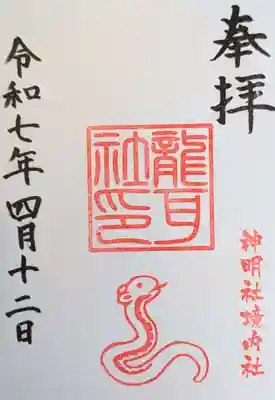 奉拝
神明社境内社
龍耳社印
令和七年四月十二日